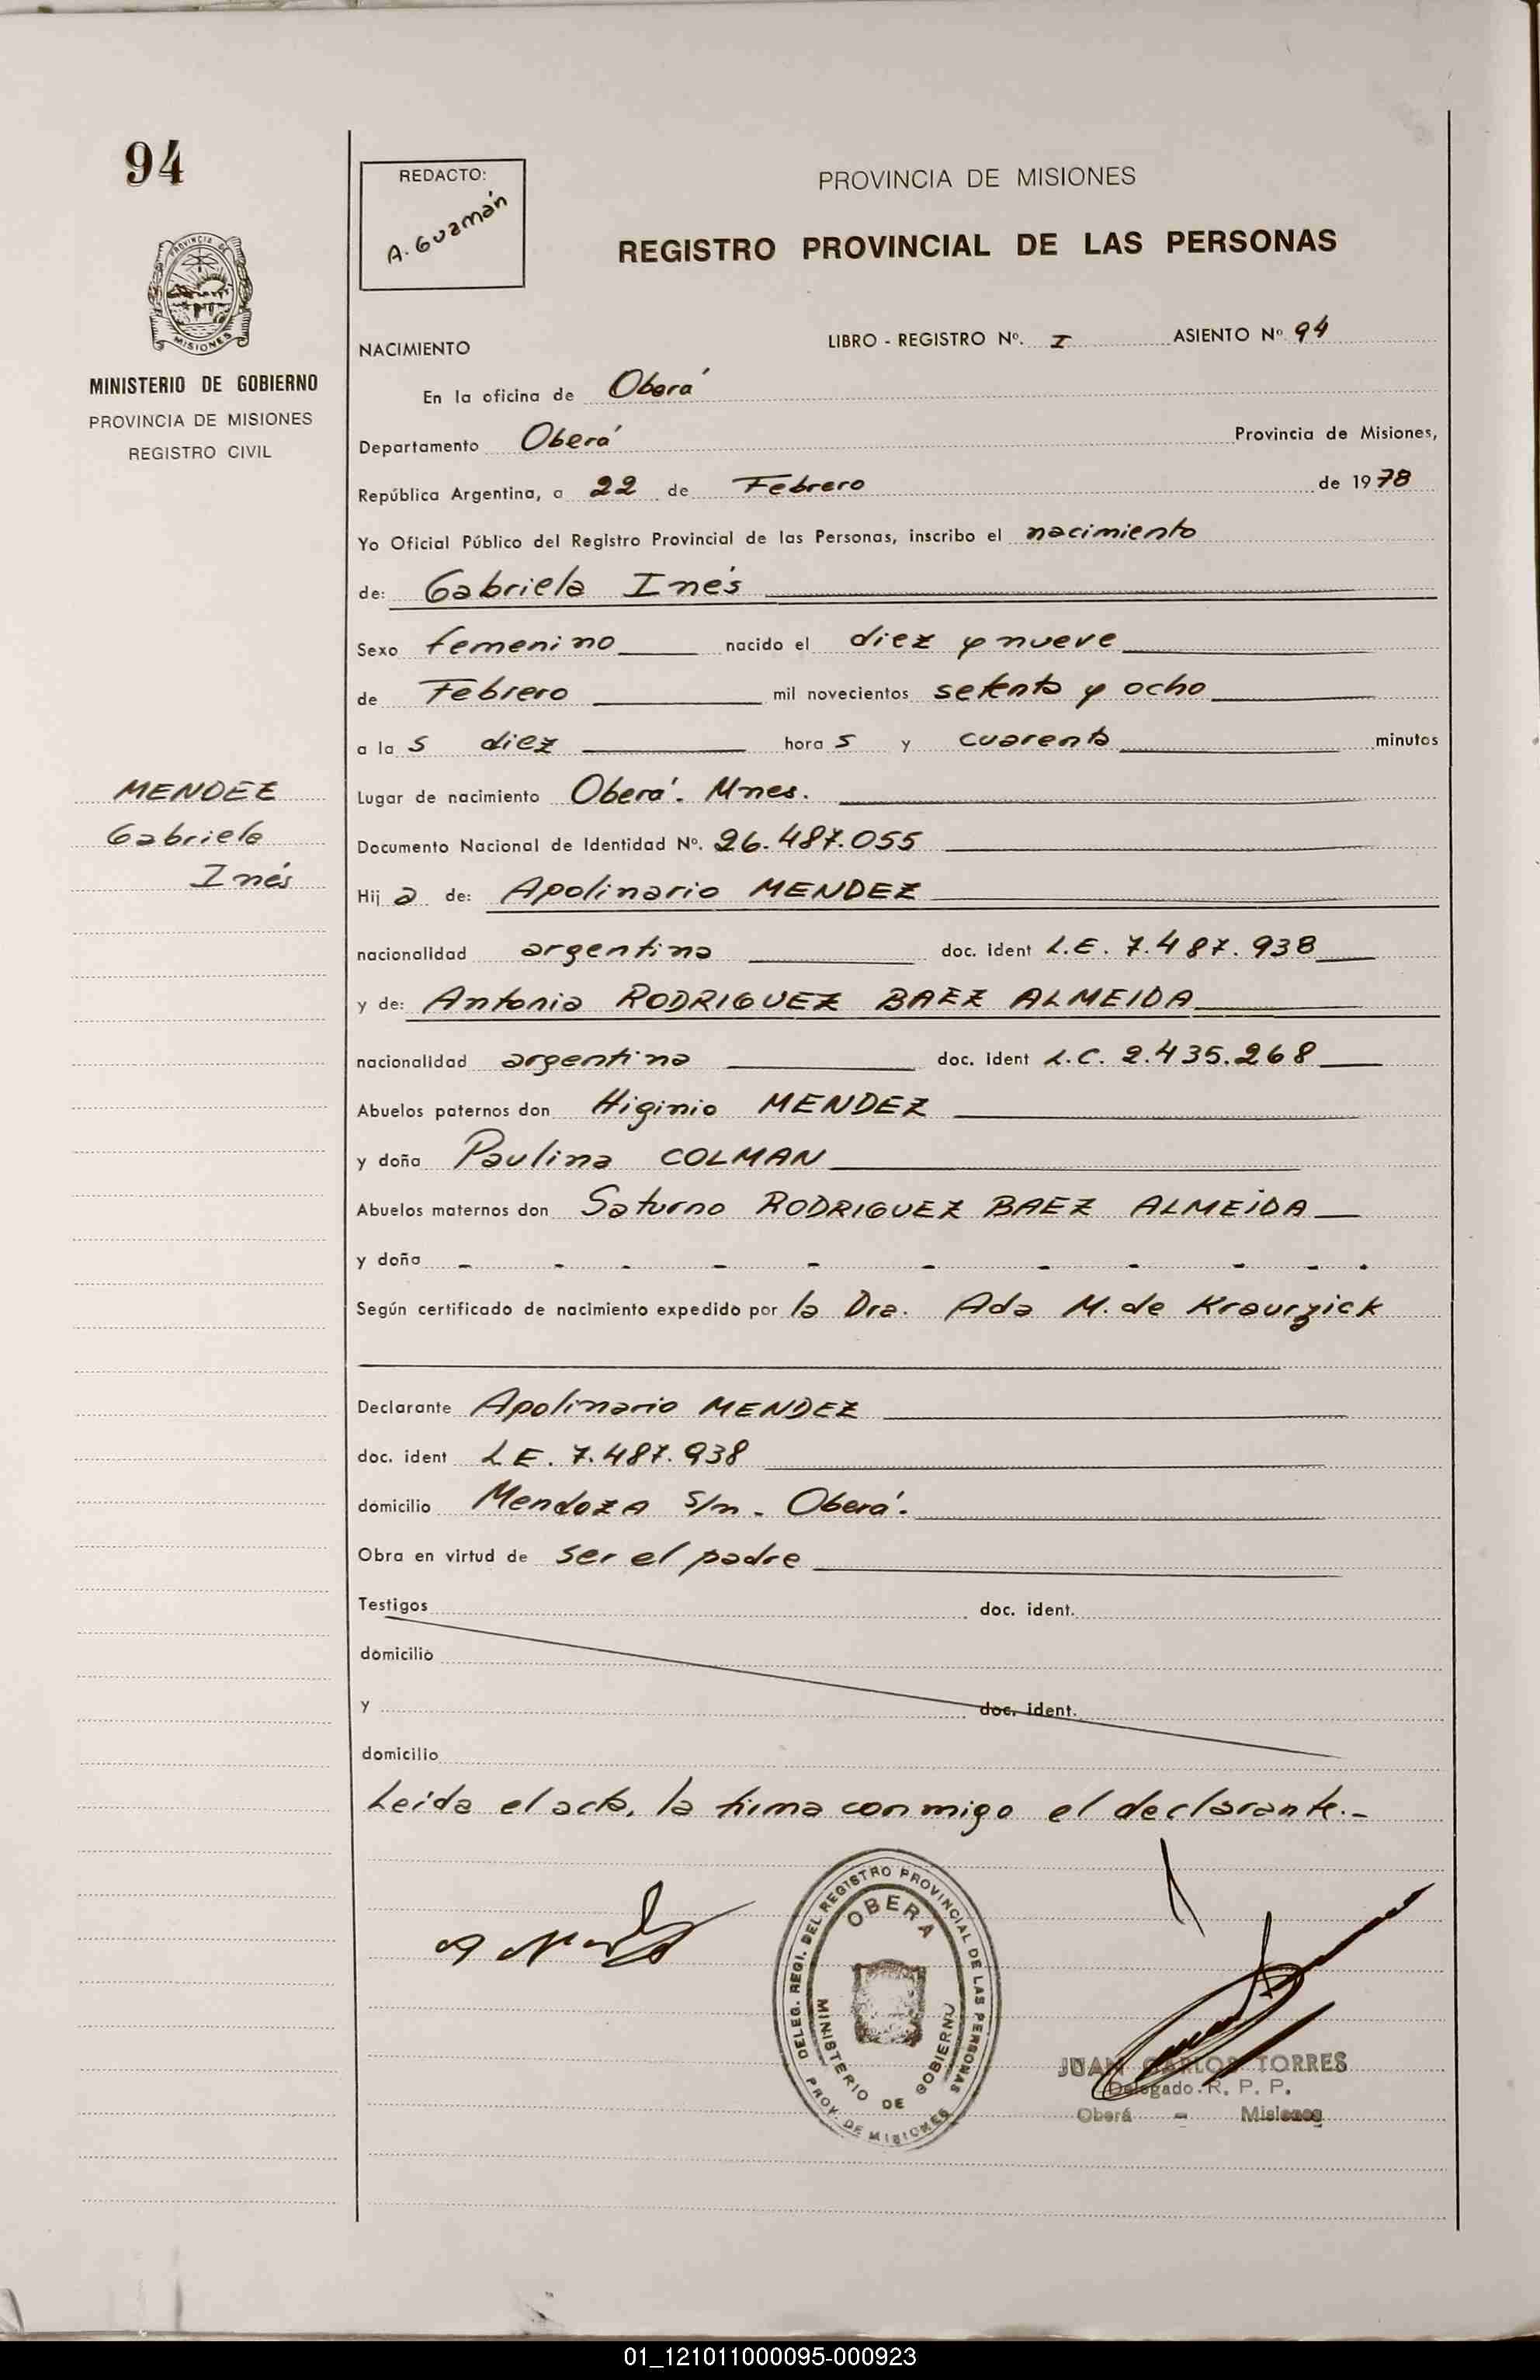 94
REDACTO:
A. Guzmán
PROVINCIA DE MISIONES
REGISTRO PROVINCIAL DE LAS PERSONAS
PROVINCIA DE
MISIONES
MINISTERIO DE GOBIERNO
PROVINCIA DE MISIONES
REGISTRO CIVIL
NACIMIENTO LIBRO - REGISTRO Nº. I ASIENTO Nº 94
En la oficina de Oberá
Departamento Oberá Provincia de Misiones,
República Argentina, a 22 de Febrero de 1978
Yo Oficial Público del Registro Provincial de las Personas, inscribo el nacimiento
de: Gabriela Inés
Sexo femenino nacido el diez y nueve
de Febrero mil novecientos setenta y ocho
a la s diez hora s y cuarenta minutos
MENDEZ
Gabriela
Inés
Lugar de nacimiento Oberá. Mnes.
Documento Nacional de Identidad Nº. 26.487.055
Hij a de: Apolinario MENDEZ
nacionalidad argentina doc. ident L.E. 7.487.938
y de: Antonia RODRIGUEZ BAEZ ALMEIDA
nacionalidad argentina doc. ident L.C. 2.435.268
Abuelos paternos don Higinio MENDEZ
y doña Paulina COLMAN
Abuelos maternos don Saturno RODRIGUEZ BAEZ ALMEIDA
y doña - - - - - - - - - - -
Según certificado de nacimiento expedido por la Dra. Ada M. de Kraurzick
Declarante Apolinario MENDEZ
doc. ident L E. 7.487.938
domicilio Mendoza s/n - Oberá.
Obra en virtud de ser el padre
Testigos doc. ident.
domicilio
y doc. ident.
domicilio
Leída el acta, la firma conmigo el declarante.-
DELEG. REGI. DEL REGISTRO PROVINCIAL DE LAS PERSONAS
OBERA
MINISTERIO DE GOBIERNO
PROV. DE MISIONES
JUAN CARLOS TORRES
Delegado R. P. P.
Oberá - Misiones
01_121011000095-000923